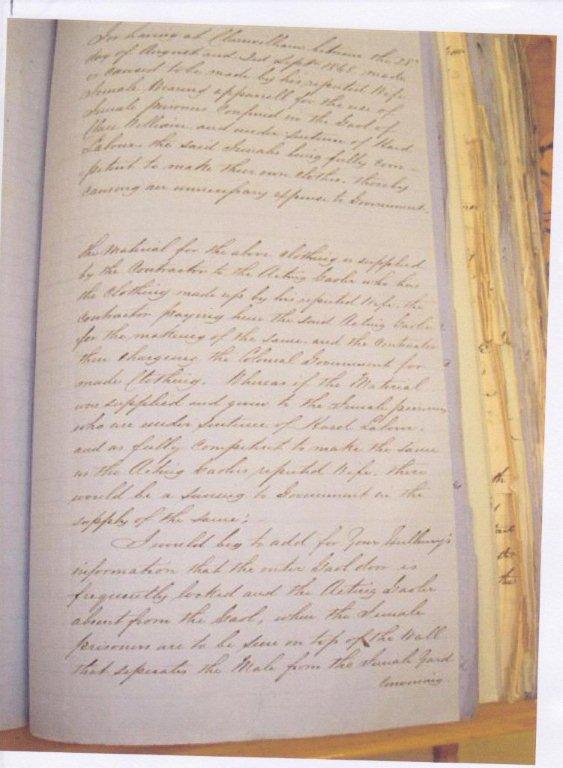 For having at Clanwilliam between the 28th
day of August and 2nd Septr 1868, made
or caused to be made by his reputed Wife
Female Wearing apparell for the use of
Female prisoners Confined in the Gaol of
Clan William and under Sentence of Hard
Labour the said Female being fully com-
petent to make their own clothes. thereby
causing an unnecessary expense to Government.
The Material for the above clothing is supplied
by the Contractor to the Acting Gaoler who has
the Clothing made up by his reputed Wife. the
Contractor praying him the said Acting Gaoler
for the makeing of the same. and the Contractor
then charging the Colonial Government for
made Clothing. Whereas if the Material
were supplied and given to the Female prisoners
who are under Sentence of Hard Labour.
and as fully Competent to make the same
as the Acting Gaolers reputed Wife. there
would be a saveing to Government in the
supply of the same;
I would beg to add for Your
information that the outer Gaol door is
frequently locked and the Acting Gaoler
absent from the Gaol, when the Female
prisoners are to be seen on top of the Wall
that seperates the Male from the Female Yard
Conversing